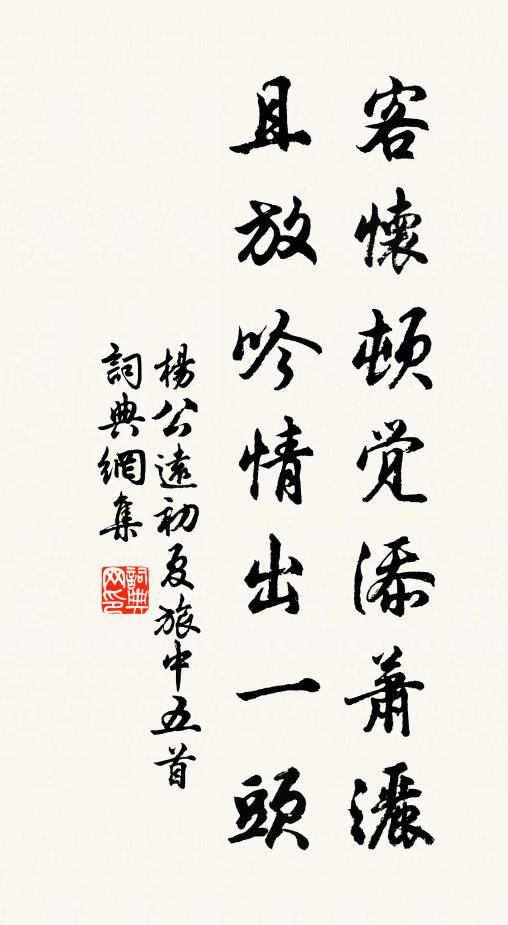 客懷頓覺添蕭灑
且放吟情出一頭
楊公遠初夏旅中五首
詞典網集
詞典網印